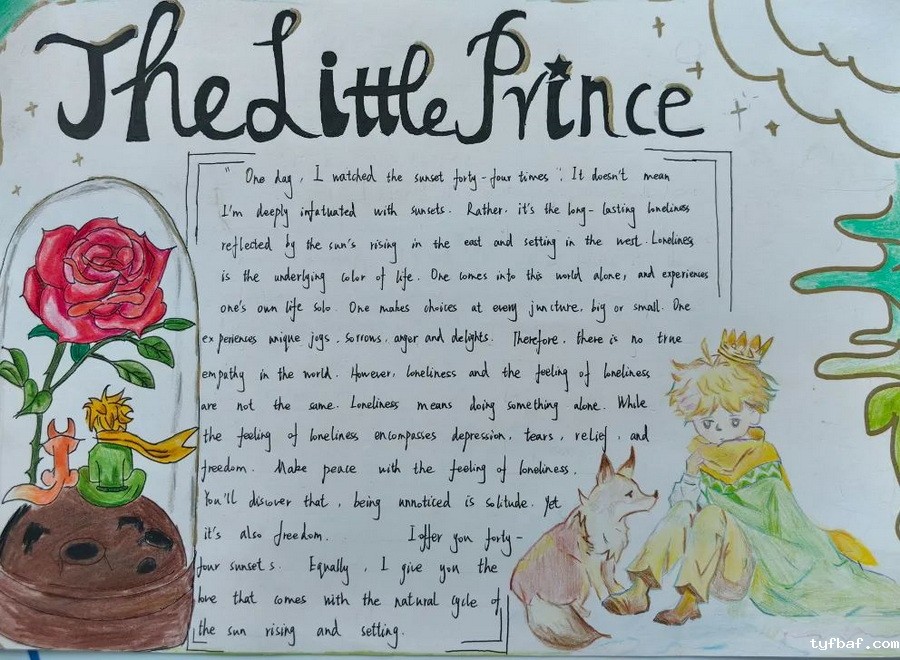 The Little Prince
" One day, I watched the sunset forty-four times ". It doesn't mean
I'm deeply infatuated with sunsets. Rather, it's the long-lasting loneliness
reflected by the sun's rising in the east and setting in the west. Loneliness
is the underlying color of life. One comes into this world alone, and experiences
one's own life solo. One makes choices at every juncture, big or small. One
experiences unique joys, sorrows, anger and delights. Therefore, there is no true
empathy in the world. However, loneliness and the feeling of loneliness
are not the same. Loneliness means doing something alone. While
the feeling of loneliness encompasses depression, tears, relief, and
freedom. Make peace with the feeling of loneliness.
You'll discover that, being unnoticed is solitude. Yet
it's also freedom. I offer you forty-
four sunsets. Equally, I give you the
love that comes with the natural cycle of
the sun rising and setting.
tyfbaf.com